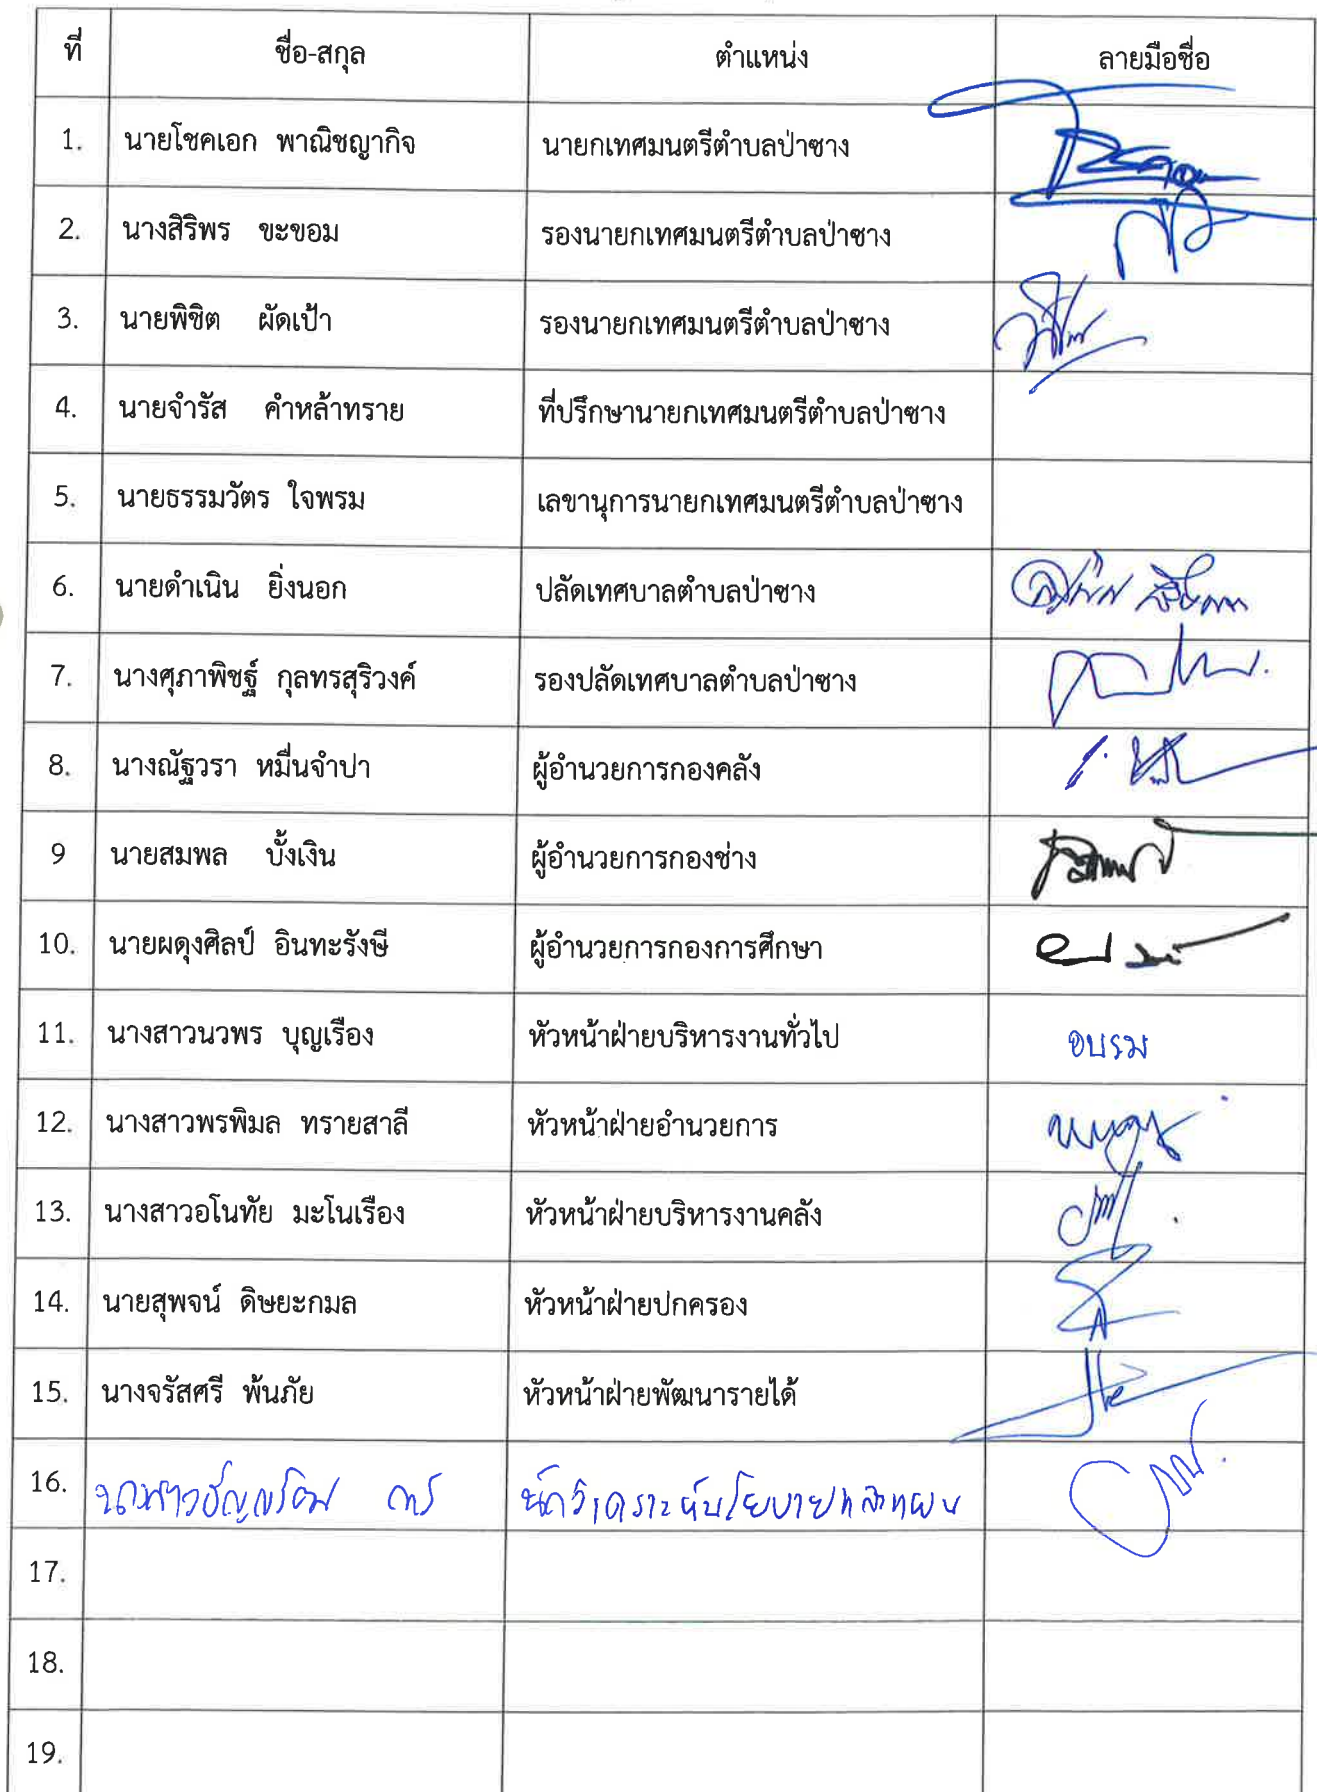 ที่ ชื่อ-สกุล ตำแหน่ง ลายมือชื่อ
1. นายโชคเอก พาณิชญากิจ นายกเทศมนตรีตำบลป่าซาง
2. นางสิริพร ขะขอม รองนายกเทศมนตรีตำบลป่าซาง
3. นายพิชิต ผัดเป้า รองนายกเทศมนตรีตำบลป่าซาง
4. นายจำรัส คำหล้าทราย ที่ปรึกษานายกเทศมนตรีตำบลป่าซาง
5. นายธรรมวัตร ใจพรม เลขานุการนายกเทศมนตรีตำบลป่าซาง
6. นายดำเนิน ยิ่งนอก ปลัดเทศบาลตำบลป่าซาง
7. นางศุภาพิชฐ์ กุลทรสุริวงค์ รองปลัดเทศบาลตำบลป่าซาง
8. นางณัฐวรา หมื่นจำปา ผู้อำนวยการกองคลัง
9 นายสมพล บั้งเงิน ผู้อำนวยการกองช่าง
10. นายผดุงศิลป์ อินทะรังษี ผู้อำนวยการกองการศึกษา
11. นางสาวนวพร บุญเรือง หัวหน้าฝ่ายบริหารงานทั่วไป อบรม
12. นางสาวพรพิมล ทรายสาลี หัวหน้าฝ่ายอำนวยการ
13. นางสาวอโนทัย มะโนเรือง หัวหน้าฝ่ายบริหารงานคลัง
14. นายสุพจน์ ดิษยะกมล หัวหน้าฝ่ายปกครอง
15. นางจรัสศรี พ้นภัย หัวหน้าฝ่ายพัฒนารายได้
16. นักวิเคราะห์นโยบายและแผน
17.
18.
19.